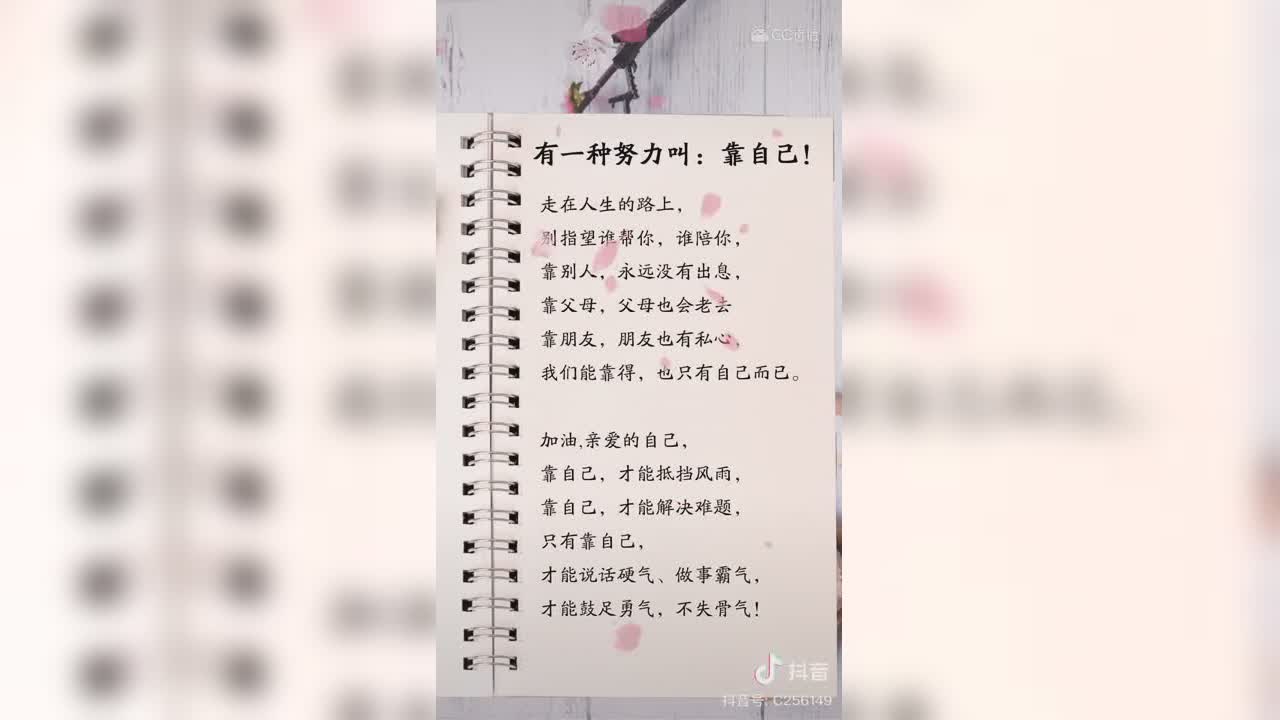 有一种努力叫：靠自己！
走在人生的路上，
别指望谁帮你，谁陪你，
靠别人，永远没有出息，
靠父母，父母也会老去
靠朋友，朋友也有私心，
我们能靠得，也只有自己而已。
加油,亲爱的自己，
靠自己，才能抵挡风雨，
靠自己，才能解决难题，
只有靠自己，
才能说话硬气、做事霸气，
才能鼓足勇气，不失骨气！
抖音
抖音号: C256149